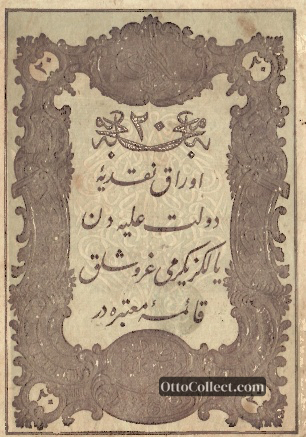 ٢٠ ٢٠
٢٠
اوراق نقدیهٔ
دولت علیه دن
یالکز یکرمی غروشلق
قائمهٔ معتبره در
٢٠ ٢٠
OttoCollect.com